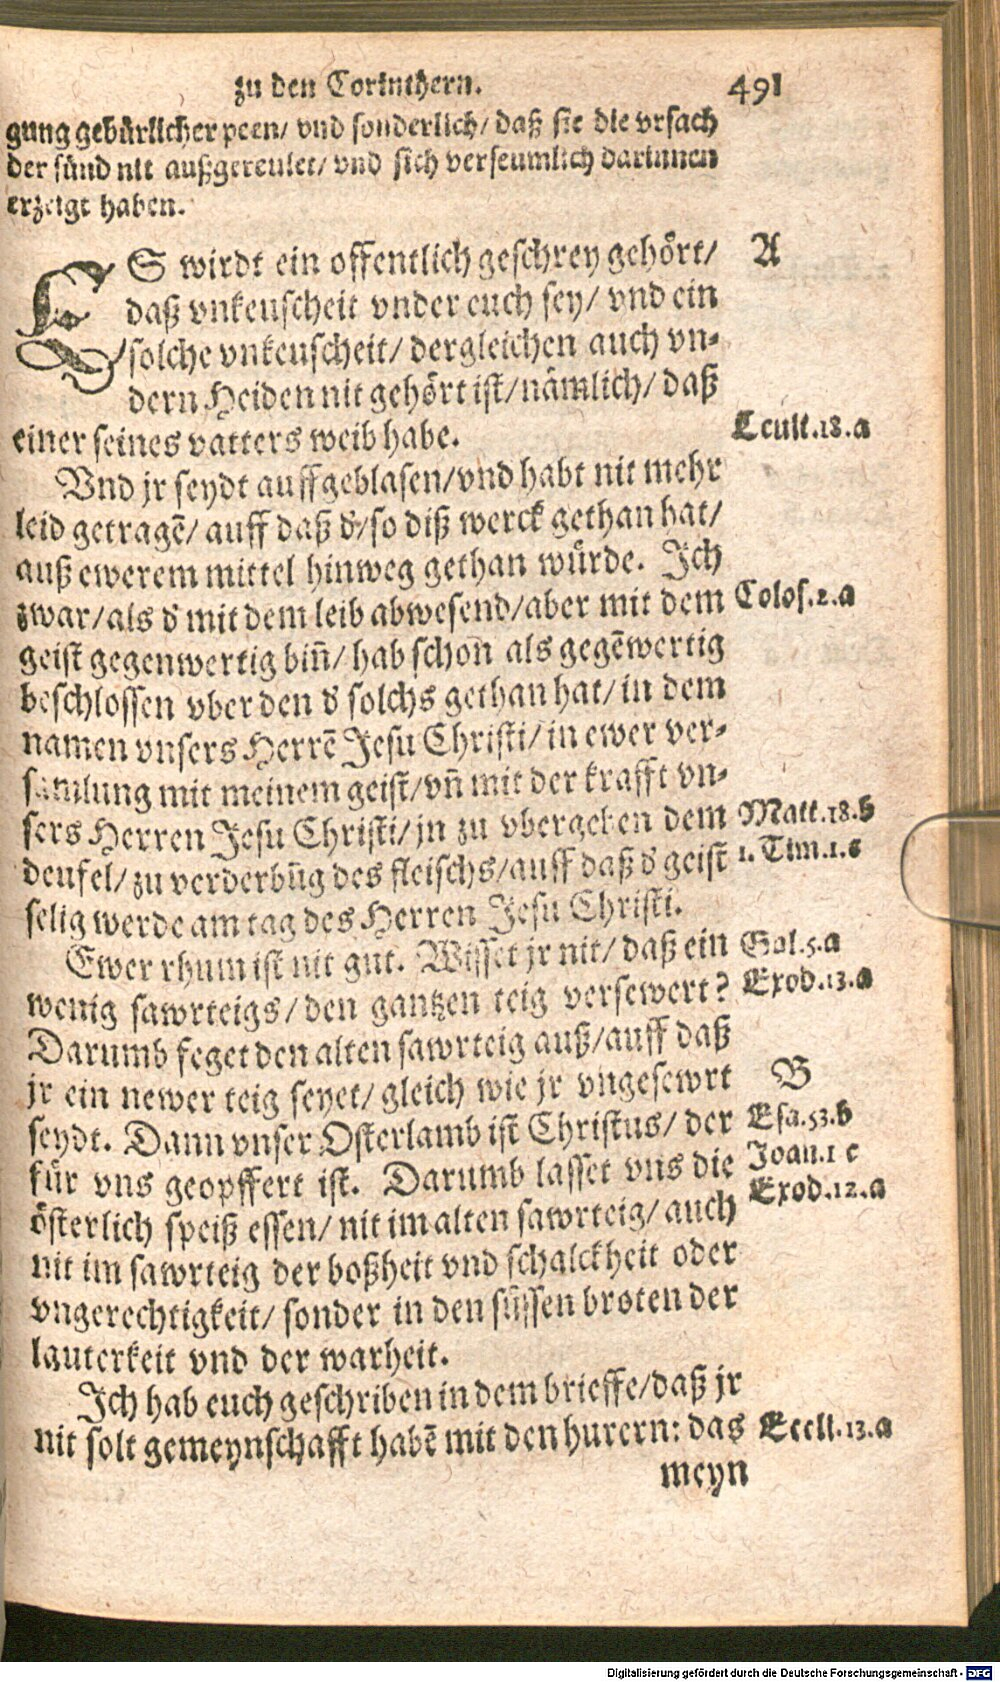 zu den Corinthern. 491
gung gebürlicher peen/ vnd sonderlich/ daß sie die vrsach
der sünd nit außgereutet/ vnd sich verseumlich darinnen
erzeigt haben.
ES wirdt ein offentlich geschrey gehört/ A
daß vnkeuscheit vnder euch sey/ vnd ein
solche vnkeuscheit/ dergleichen auch vn-
dern Heiden nit gehört ist/ nämlich/ daß
einer seines vatters weib habe. Leuit.18.a
Vnd jr seydt auffgeblasen/ vnd habt nit mehr
leid getragē/ auff daß d'/ so diß werck gethan hat/
auß ewerem mittel hinweg gethan würde. Ich
zwar/ als d' mit dem leib abwesend/ aber mit dem Colos.2.a
geist gegenwertig biñ/ hab schon als gegēwertig
beschlossen vber den d' solchs gethan hat/ in dem
namen vnsers Herrē Jesu Christi/ in ewer ver-
samlung mit meinem geist/ vñ mit der krafft vn-
sers Herren Jesu Christi/ jn zu vbergeben dem Matt.18.b
deufel/ zu verderbūg des fleischs/ auff daß d' geist 1. Tim.1.c
selig werde am tag des Herren Jesu Christi.
Ewer rhum ist nit gut. Wisset jr nit/ daß ein Gal.5.a
wenig sawrteigs/ den gantzen teig versewert? Exod.13.a
Darumb feget den alten sawrteig auß/ auff daß
jr ein newer teig seyet/ gleich wie jr vngesewrt B
seydt. Dann vnser Osterlamb ist Christus/ der Esa.53.b
für vns geopffert ist. Darumb lasset vns die Joan.1 c
österlich speiß essen/ nit im alten sawrteig/ auch Exod.12.a
nit im sawrteig der boßheit vnd schalckheit oder
vngerechtigkeit/ sonder in den süssen broten der
lauterkeit vnd der warheit.
Ich hab euch geschriben in dem brieffe/ daß jr
nit solt gemeynschafft habē mit den hurern: das Eccli.13.a
meyn
Digitalisierung gefördert durch die Deutsche Forschungsgemeinschaft - DFG